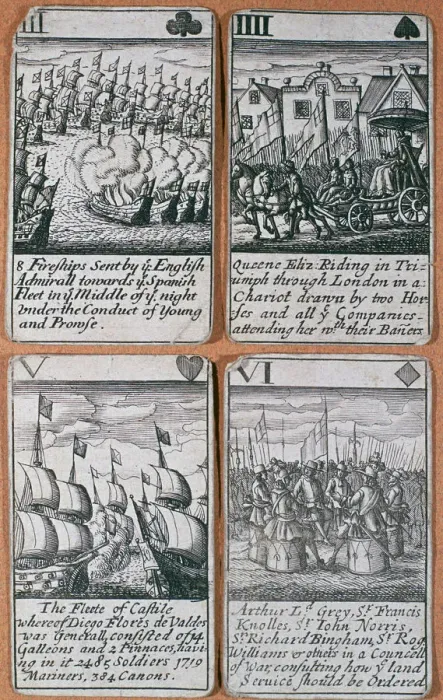 III
8 Fireships Sent by yᵉ English
Admirall towards yᵉ Spanish
Fleet in yᵉ Middle of yᵉ. night
Vnder the Conduct of Young
and Prowse.
IIII
Queene Eliz: Riding in Tri=
umph through London in a:
Chariot drawn by two Hor=
ses and all yᵉ Companies-
attending her wᵗʰ their Bañers
V
The Fleete of Castile
whereof Diego Flores de Valdes
was Generall, consisted of 14
Galleons and 2 Pinnaces, hav=
ing in it 2485 Soldiers 1719
Mariners, 384 Canons.
VI
Arthur Lᵈ Grey, Sʳ. Francis
Knolles, Sʳ. Iohn Norris,
Sʳ. Richard Bingham, Sʳ Rog
Williams & others in a Councell
of War, consulting how yᵉ land
Service should be Ordered